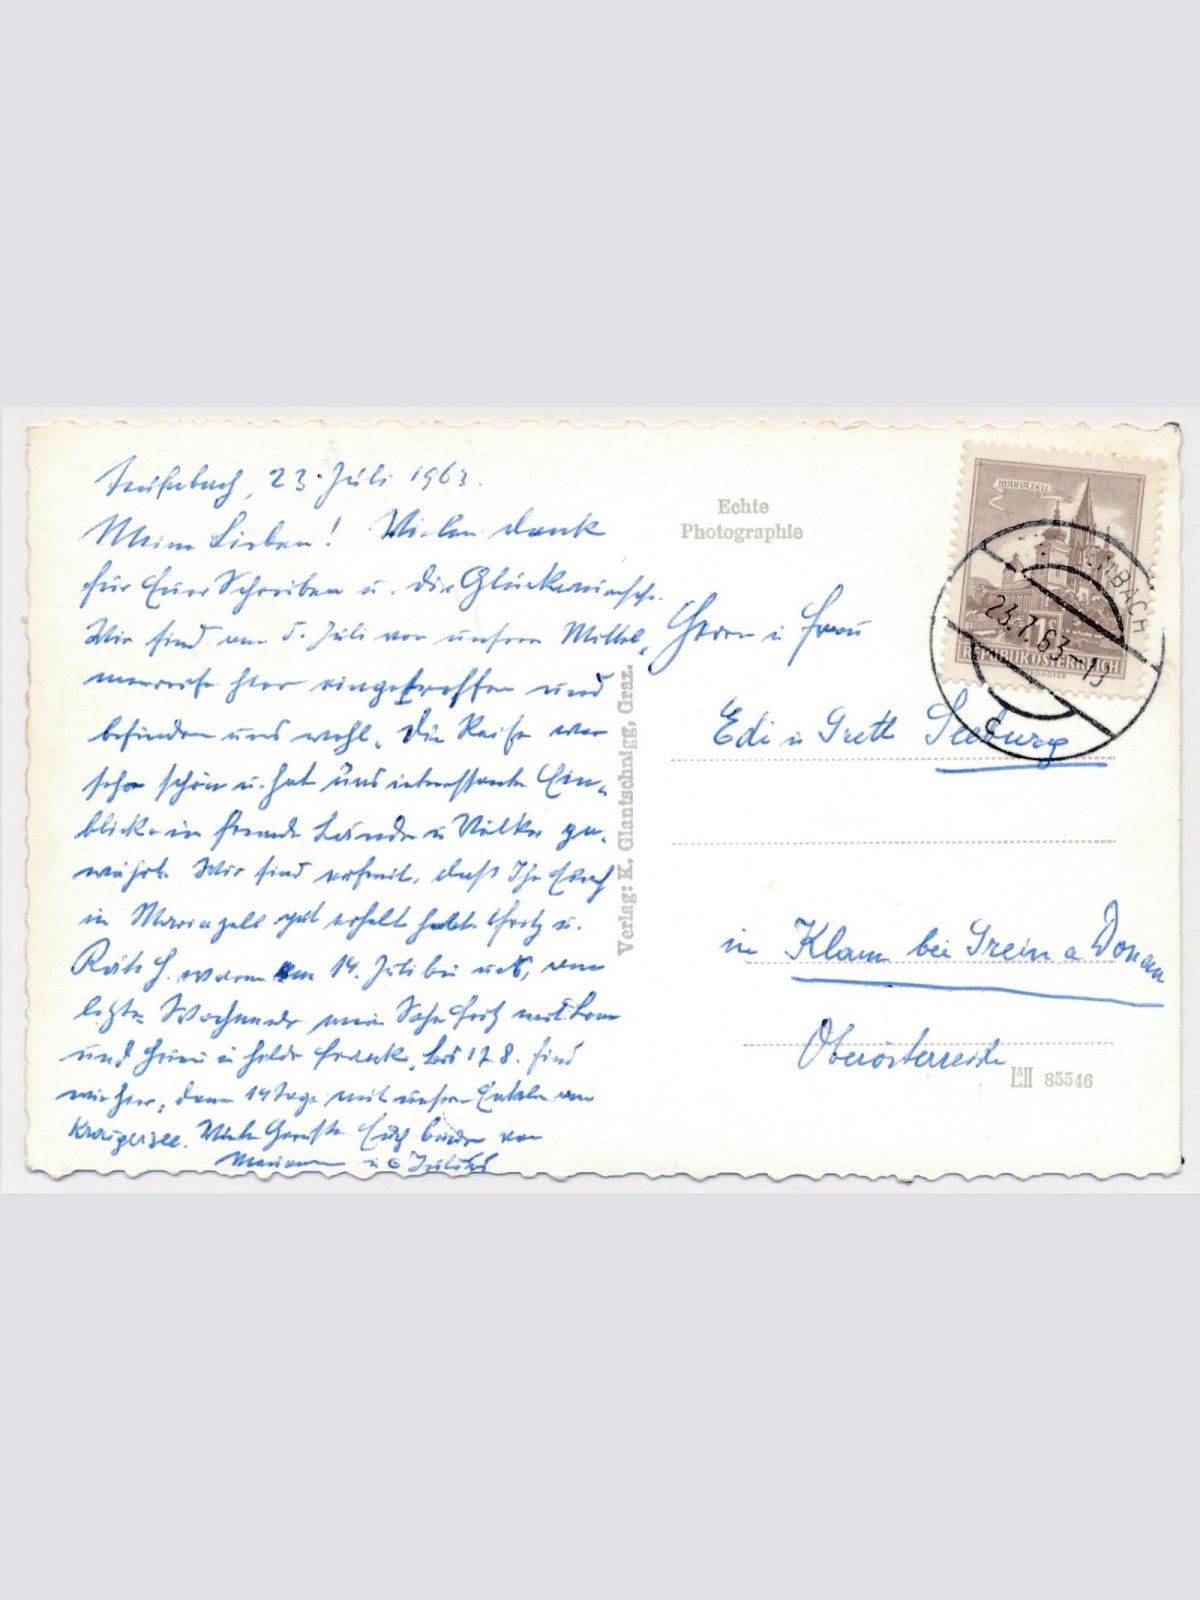 Teufenbach, 23. Juli 1963.
Meine Lieben! Vielen Dank
für Euer Schreiben u. die Glückwünsche.
Wir sind am 5. Juli von unserer Mittel-
meerreise hier eingetroffen und
befinden uns wohl. Die Reise war
sehr schön u. hat uns interessante Ein-
blicke in fremde Länder u Völker ge-
währt. Wir sind erfreut, daß Ihr Euch
in Mariazell gut erholt habt. Fritz u.
Käthe H. waren am 14. Juli bei uns, am
letzten Wochenende mein Sohn Fritz mit
und u Hilde Frank. Bis 17. 8. sind
wir hier, dann 14 Tage mit unseren Enkeln am
Kraigersee. Viele Grüße Euch beiden von
Mariann u
Echte
Photographie
Verlag: K. Glantschnigg, Graz.
MARIAZELL
REPUBLIK ÖSTERREICH
ENBACH
23.7.63-13
c
Herrn u Frau
Edi u Gretl Seeburg
in Klam bei Grein a Donau
Oberösterreich
85546